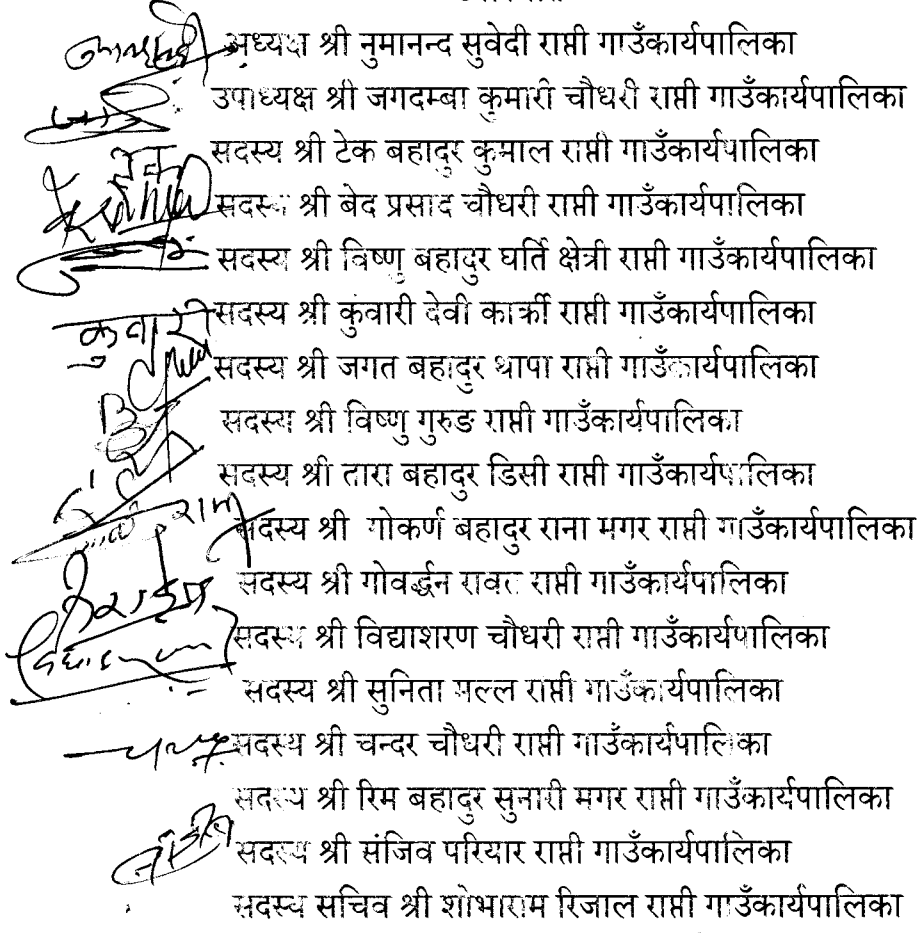 अध्यक्ष श्री नुमानन्द सुवेदी राप्ती गाउँकार्यपालिका
उपाध्यक्ष श्री जगदम्बा कुमारी चौधरी राप्ती गाउँकार्यपालिका
सदस्य श्री टेक बहादुर कुमाल राप्ती गाउँकार्यपालिका
सदस्य श्री बेद प्रसाद चौधरी राप्ती गाउँकार्यपालिका
सदस्य श्री विष्णु बहादुर घर्ति क्षेत्री राप्ती गाउँकार्यपालिका
कुवारी सदस्य श्री कुवारी देवी कार्की राप्ती गाउँकार्यपालिका
सदस्य श्री जगत बहादुर थापा राप्ती गाउँकार्यपालिका
सदस्य श्री विष्णु गुरुङ राप्ती गाउँकार्यपालिका
सदस्य श्री तारा बहादुर डिसी राप्ती गाउँकार्यपालिका
सदस्य श्री गोकर्ण बहादुर राना मगर राप्ती गाउँकार्यपालिका
सदस्य श्री गोवर्द्धन रावत राप्ती गाउँकार्यपालिका
सदस्य श्री विद्याशरण चौधरी राप्ती गाउँकार्यपालिका
सदस्य श्री सुनिता मल्ल राप्ती गाउँकार्यपालिका
सदस्य श्री चन्दर चौधरी राप्ती गाउँकार्यपालिका
सदस्य श्री रिम बहादुर सुनारी मगर राप्ती गाउँकार्यपालिका
सदस्य श्री संजिव परियार राप्ती गाउँकार्यपालिका
सदस्य सचिव श्री शोभाराम रिजाल राप्ती गाउँकार्यपालिका